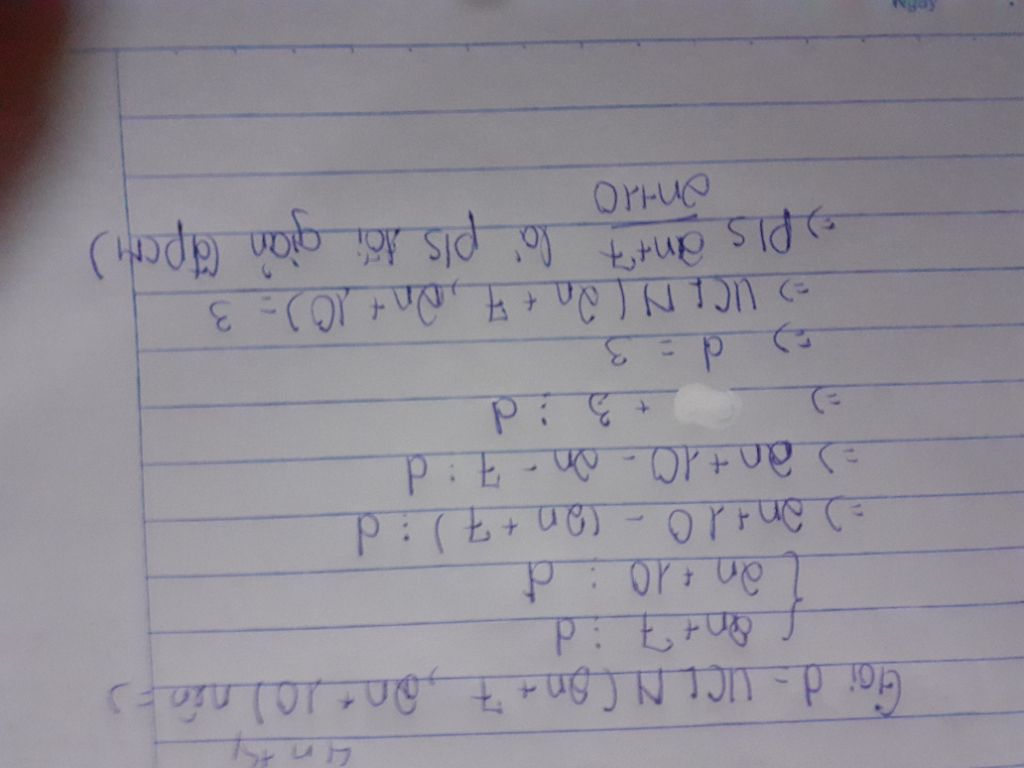 4n+
Gọi d = ƯCLN (2n+7, 2n+10) nên =>
{ 2n+7 ⋮ d
2n+10 ⋮ d
=> 2n+10 - (2n+7) ⋮ d
=> 2n+10 - 2n - 7 ⋮ d
=> + 3 ⋮ d
=> d = 3
=> ƯCLN (2n+7, 2n+10) = 3
=> pls 2n+7 là pls tối giản (đpcm)
2n+10
Ngày